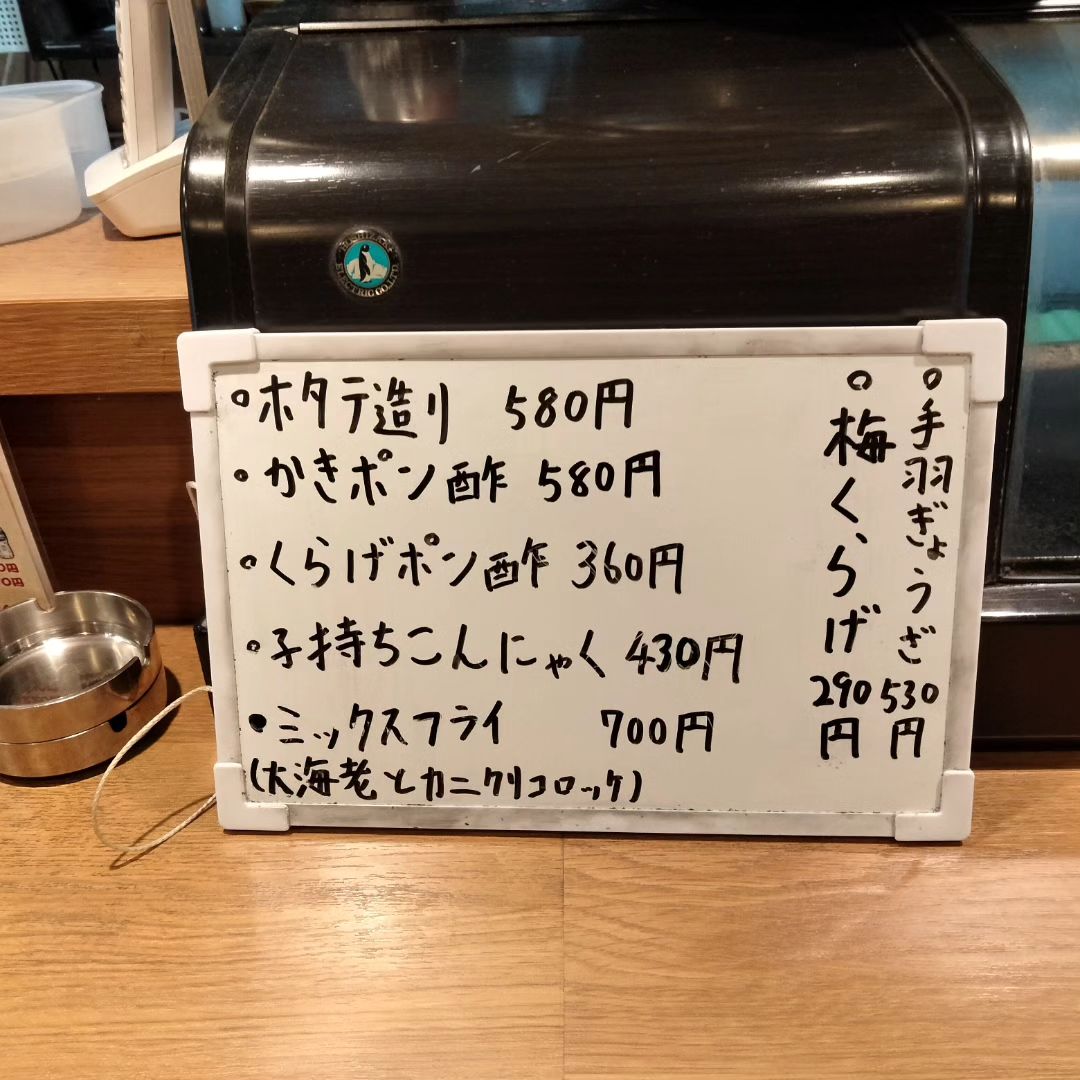 ホタテ造り 580円
かきポン酢 580円
くらげポン酢 360円
子持ちこんにゃく 430円
ミックスフライ 700円
(大海老とカニクリコロッケ)
手羽ぎょうざ 530円
梅くらげ 290円
HOSHIZAKI ELECTRIC CO.,LTD.